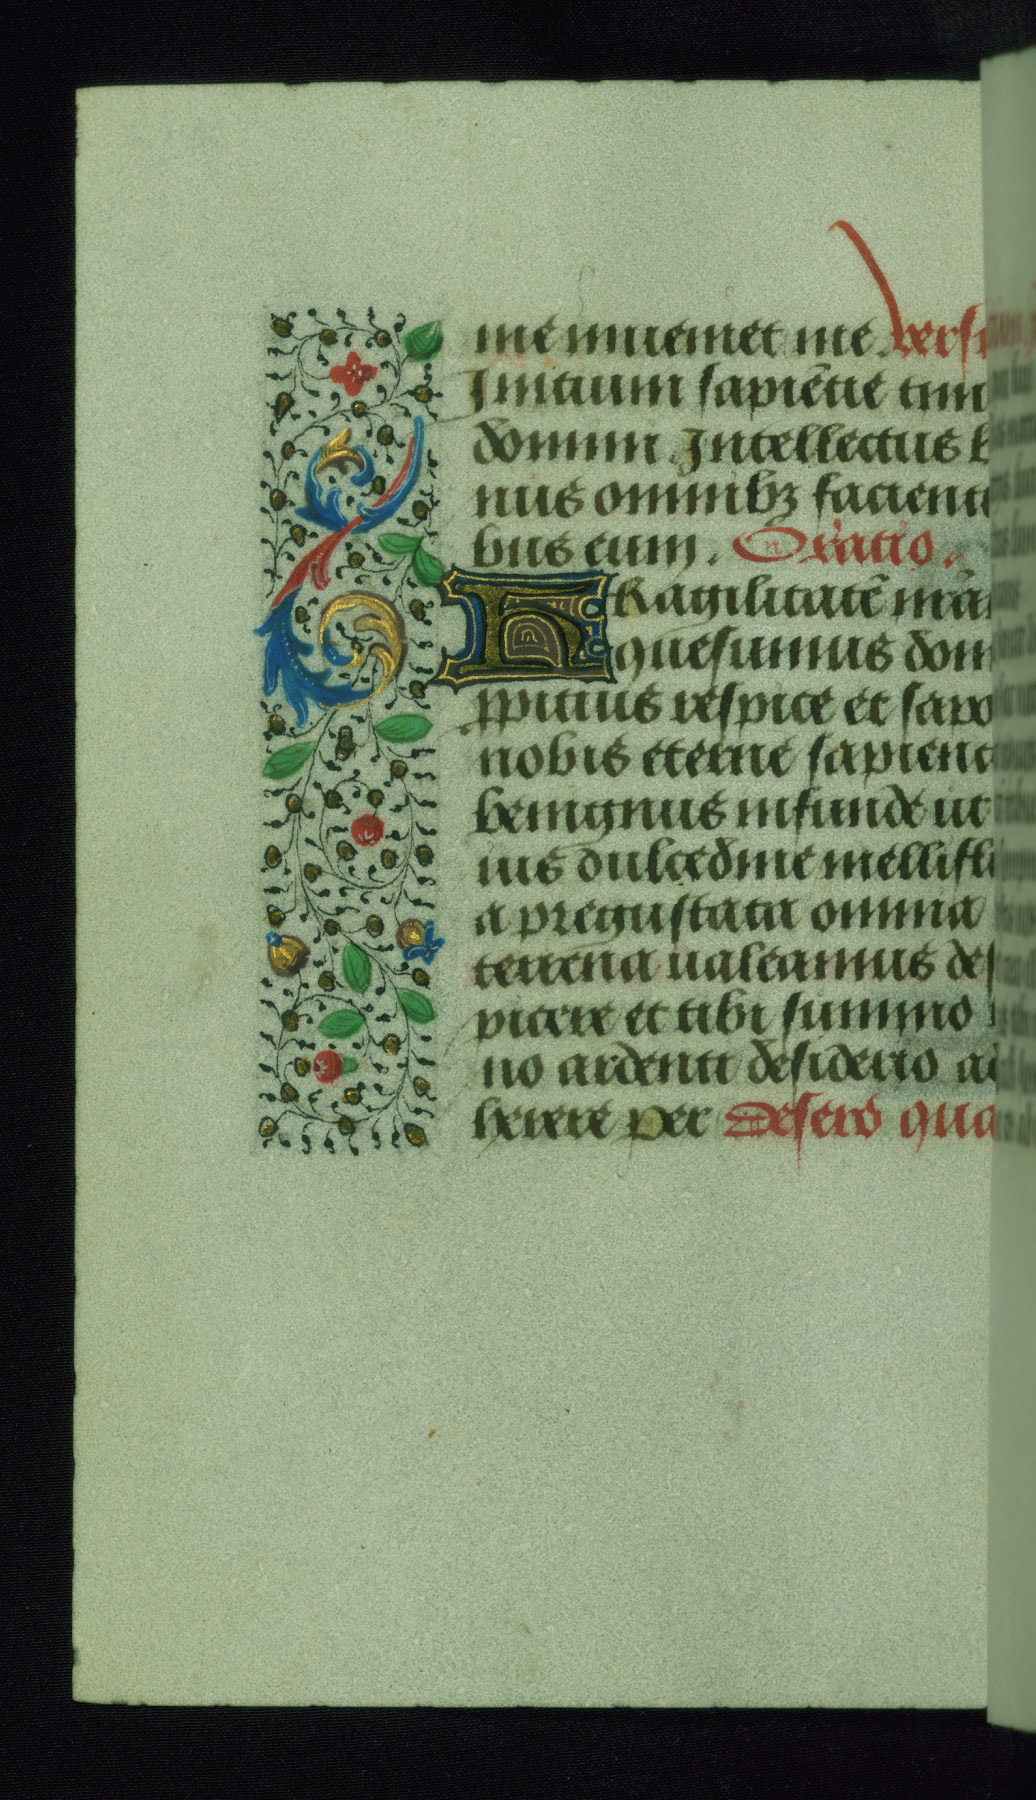 me inuemet me. versu
Initium sapiētie tim
domini. Intellectus b
nus omnibꝫ facient
bus eum. Oratio.
FRagilitatē nrā
quesumus dom
ppicius respice et sapo
nobis eterne sapient
benignus infunde ut
ius dulcedine melliflu
a pregustata omnia
terrena ualeamus des
picere et tibi summo
no ardenti desiderio ad
herere per Desero qua